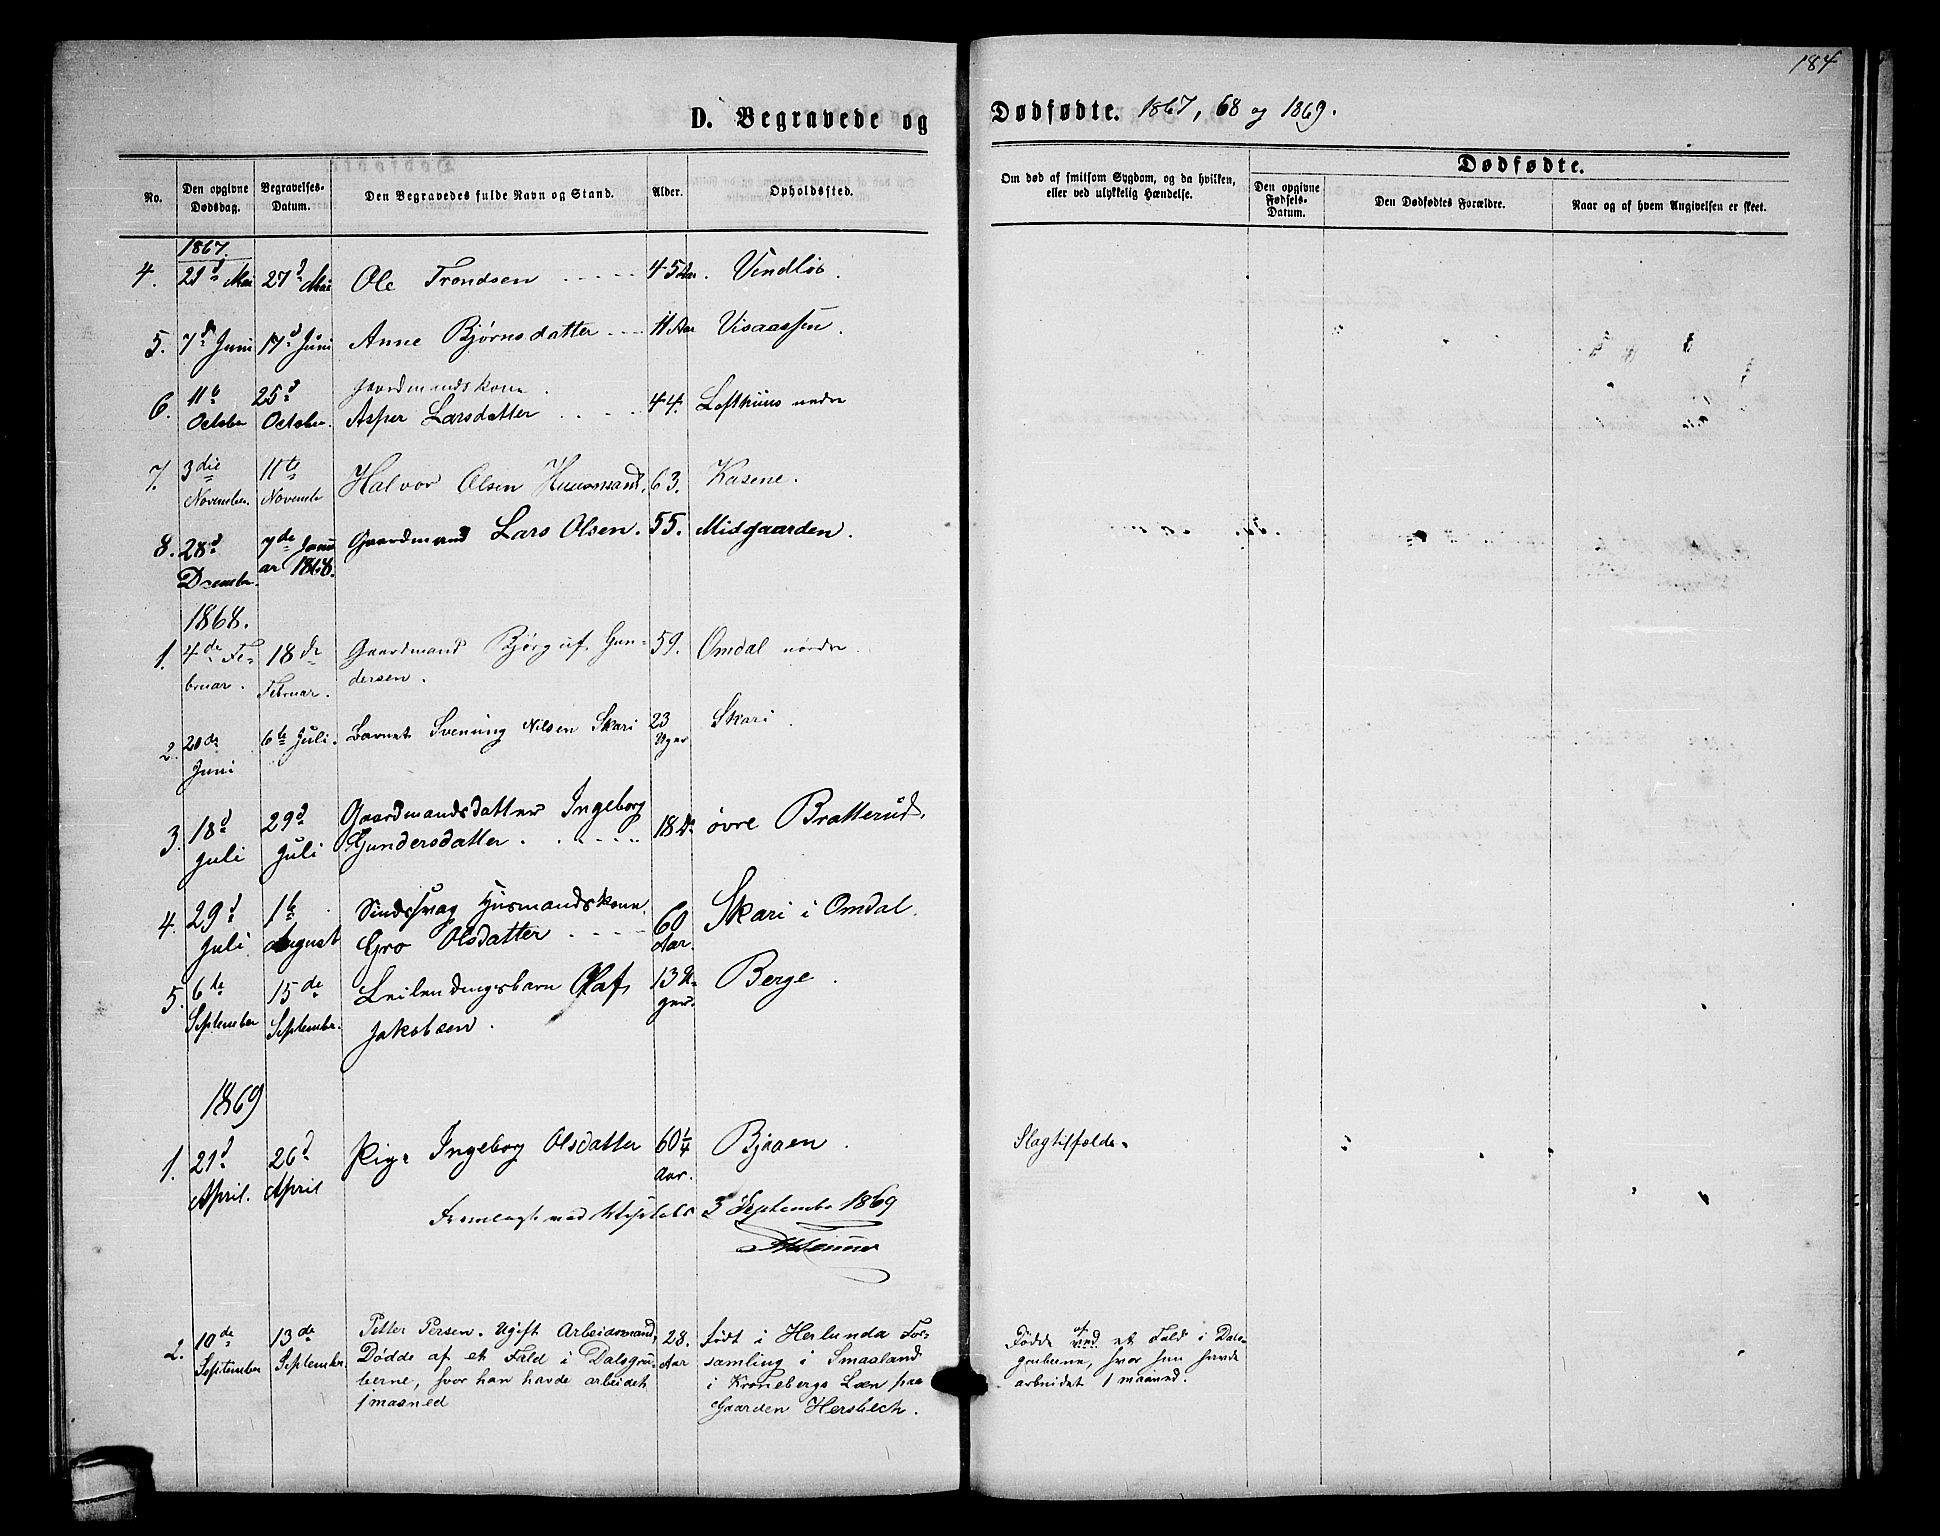 184
D. Begravede og Dødfødte. 1867, 68 og 1869.
No.
Den opgivne Dødsdag.
Begravelses-Datum.
Den Begravedes fulde Navn og Stand.
Alder.
Opholdssted.
Om død af smitsom Sygdom, og da hvilken, eller ved ulykkelig Hændelse.
Dødfødte.
Den opgivne Fødsels-Datum.
Den Dødfødtes Forældre.
Naar og af hvem Angivelsen er skeet.
1867.
4. 21d Mai 27d Mai Ole Trondsen 45 Aar. Vindlös
5. 7d Juni 17d Juni Anne Bjørnsdatter 11 Aar Visaassen.
Gaardmandskone
6. 11te October 25d October. Asper Larsdatter 44. Lofthuus nedre
7. 3die November. 11te November Halvor Olsen Huusmand. 63. Kasene.
8. 28d December. 7de Janu
ar 1868. Gaardmand Lars Olsen. 55. Midgaarden.
1868.
1. 4de Fe-
bruar. 18de Februar. Gaardmand Bjørguf Gun-
dersen. 59. Omdal nørdre
2. 20de Juni 6te Juli. Barnet Svenung Nilsen Skari 23 Uger Skari.
3. 18d Juli 29d Juli Gaardmandsdatter Ingeborg
Gundersdatter. 18 Aar øvre Bratterud.
4. 29d Juli 1te August Sindssvag Husmandskone
Gro Olsdatter 60 Aar. Skari i Omdal.
5. 6te September 15de September. Leilendingsbarn Olaf
Jakobsen. 13 U-
ger. Berge.
1869
1. 21d April. 26d April Pige Ingeborg Olsdatter 60 1/4 Aar. Bjaaen. Slagtilfælde.
Fremlagt ved 3 September 1869
2. 10de September 13de September. Petter Persen. Ugift Arbeidsmand, 28. Aar født i Herlunda For-
Dødde af et Fald i Dalsgru- samling i Smaaland
berne, hvor han havde arbeidet i Kronebergs Læn paa
1 maaned Gaarden Hersbech.
Dødde af ved et Fald i Dals-
gruberne, hvor han havde
arbeidet 1 maaned.